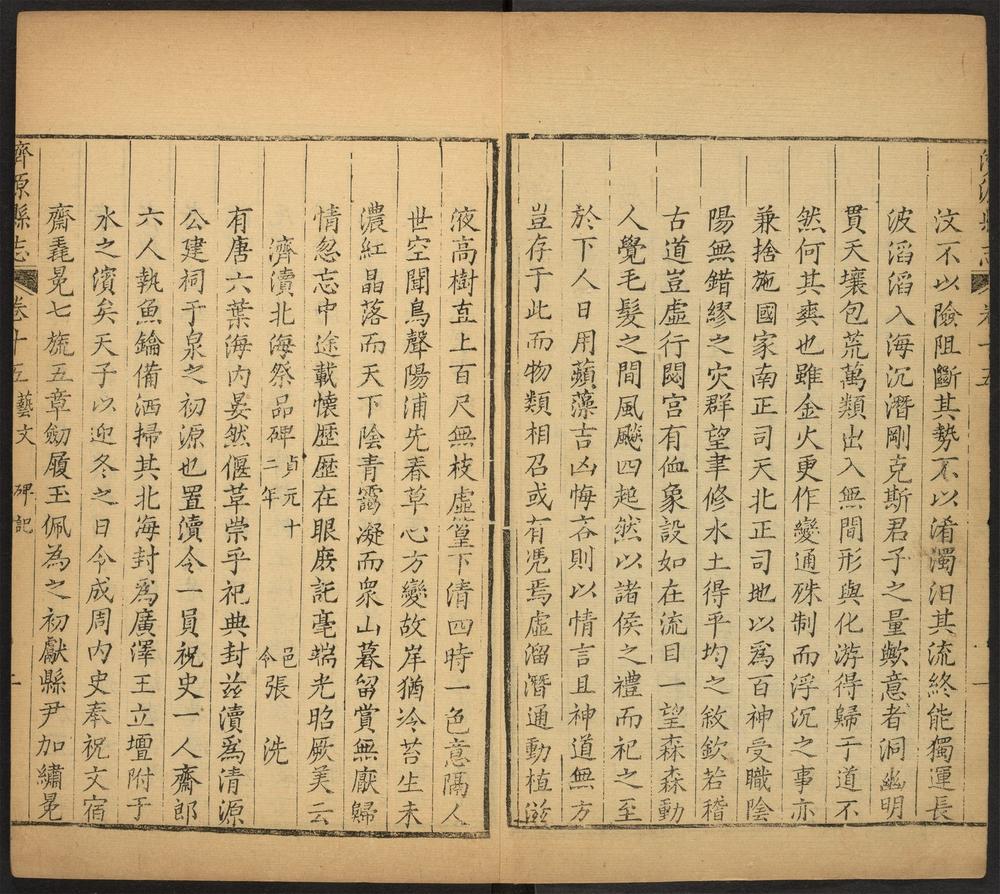 汶不以險阻斷其勢不以淆濁汨其流終能獨運長
波滔滔入海沉潛剛克斯君子之量歟意者洞幽明
貫天壤包荒萬類出入無間形與化游得歸于道不
然何其爽也雖金火更作變通殊制而浮沉之事亦
兼捨施國家南正司天北正司地以爲百神受職陰
陽無錯繆之灾群望聿修水土得平均之敘欽若稽
古道豈虛行閟宮有侐象設如在流目一望森森動
人覺毛髮之間風飈四起然以諸侯之禮而祀之至
於下人日用蘋藻吉凶悔吝則以情言且神道無方
豈存于此而物類相召或有凭焉虛溜潛通動植滋
液高樹直上百尺無枝虛篁下清四時一色意隔人
世空聞鳥聲陽浦先春草心方變故岸猶冷苔生未
濃紅晶落而天下陰青靄凝而衆山暮留賞無厭歸
情忽忘中途載懷歷歷在眼庶託毫端光昭厥美云
濟瀆北海祭品碑貞元十二年 邑令張洗
有唐六葉海內晏然偃草崇乎祀典封茲瀆爲清源
公建祠于泉之初源也置瀆令一員祝史一人齋郎
六人執魚鑰備洒掃其北海封爲廣澤王立壇附于
水之濱矣天子以迎冬之日令成周內史奉祝文宿
齋毳冕七旒五章劒履玉佩為之初獻縣尹加繡冕
濟源縣志 卷十五 藝文 碑記 二